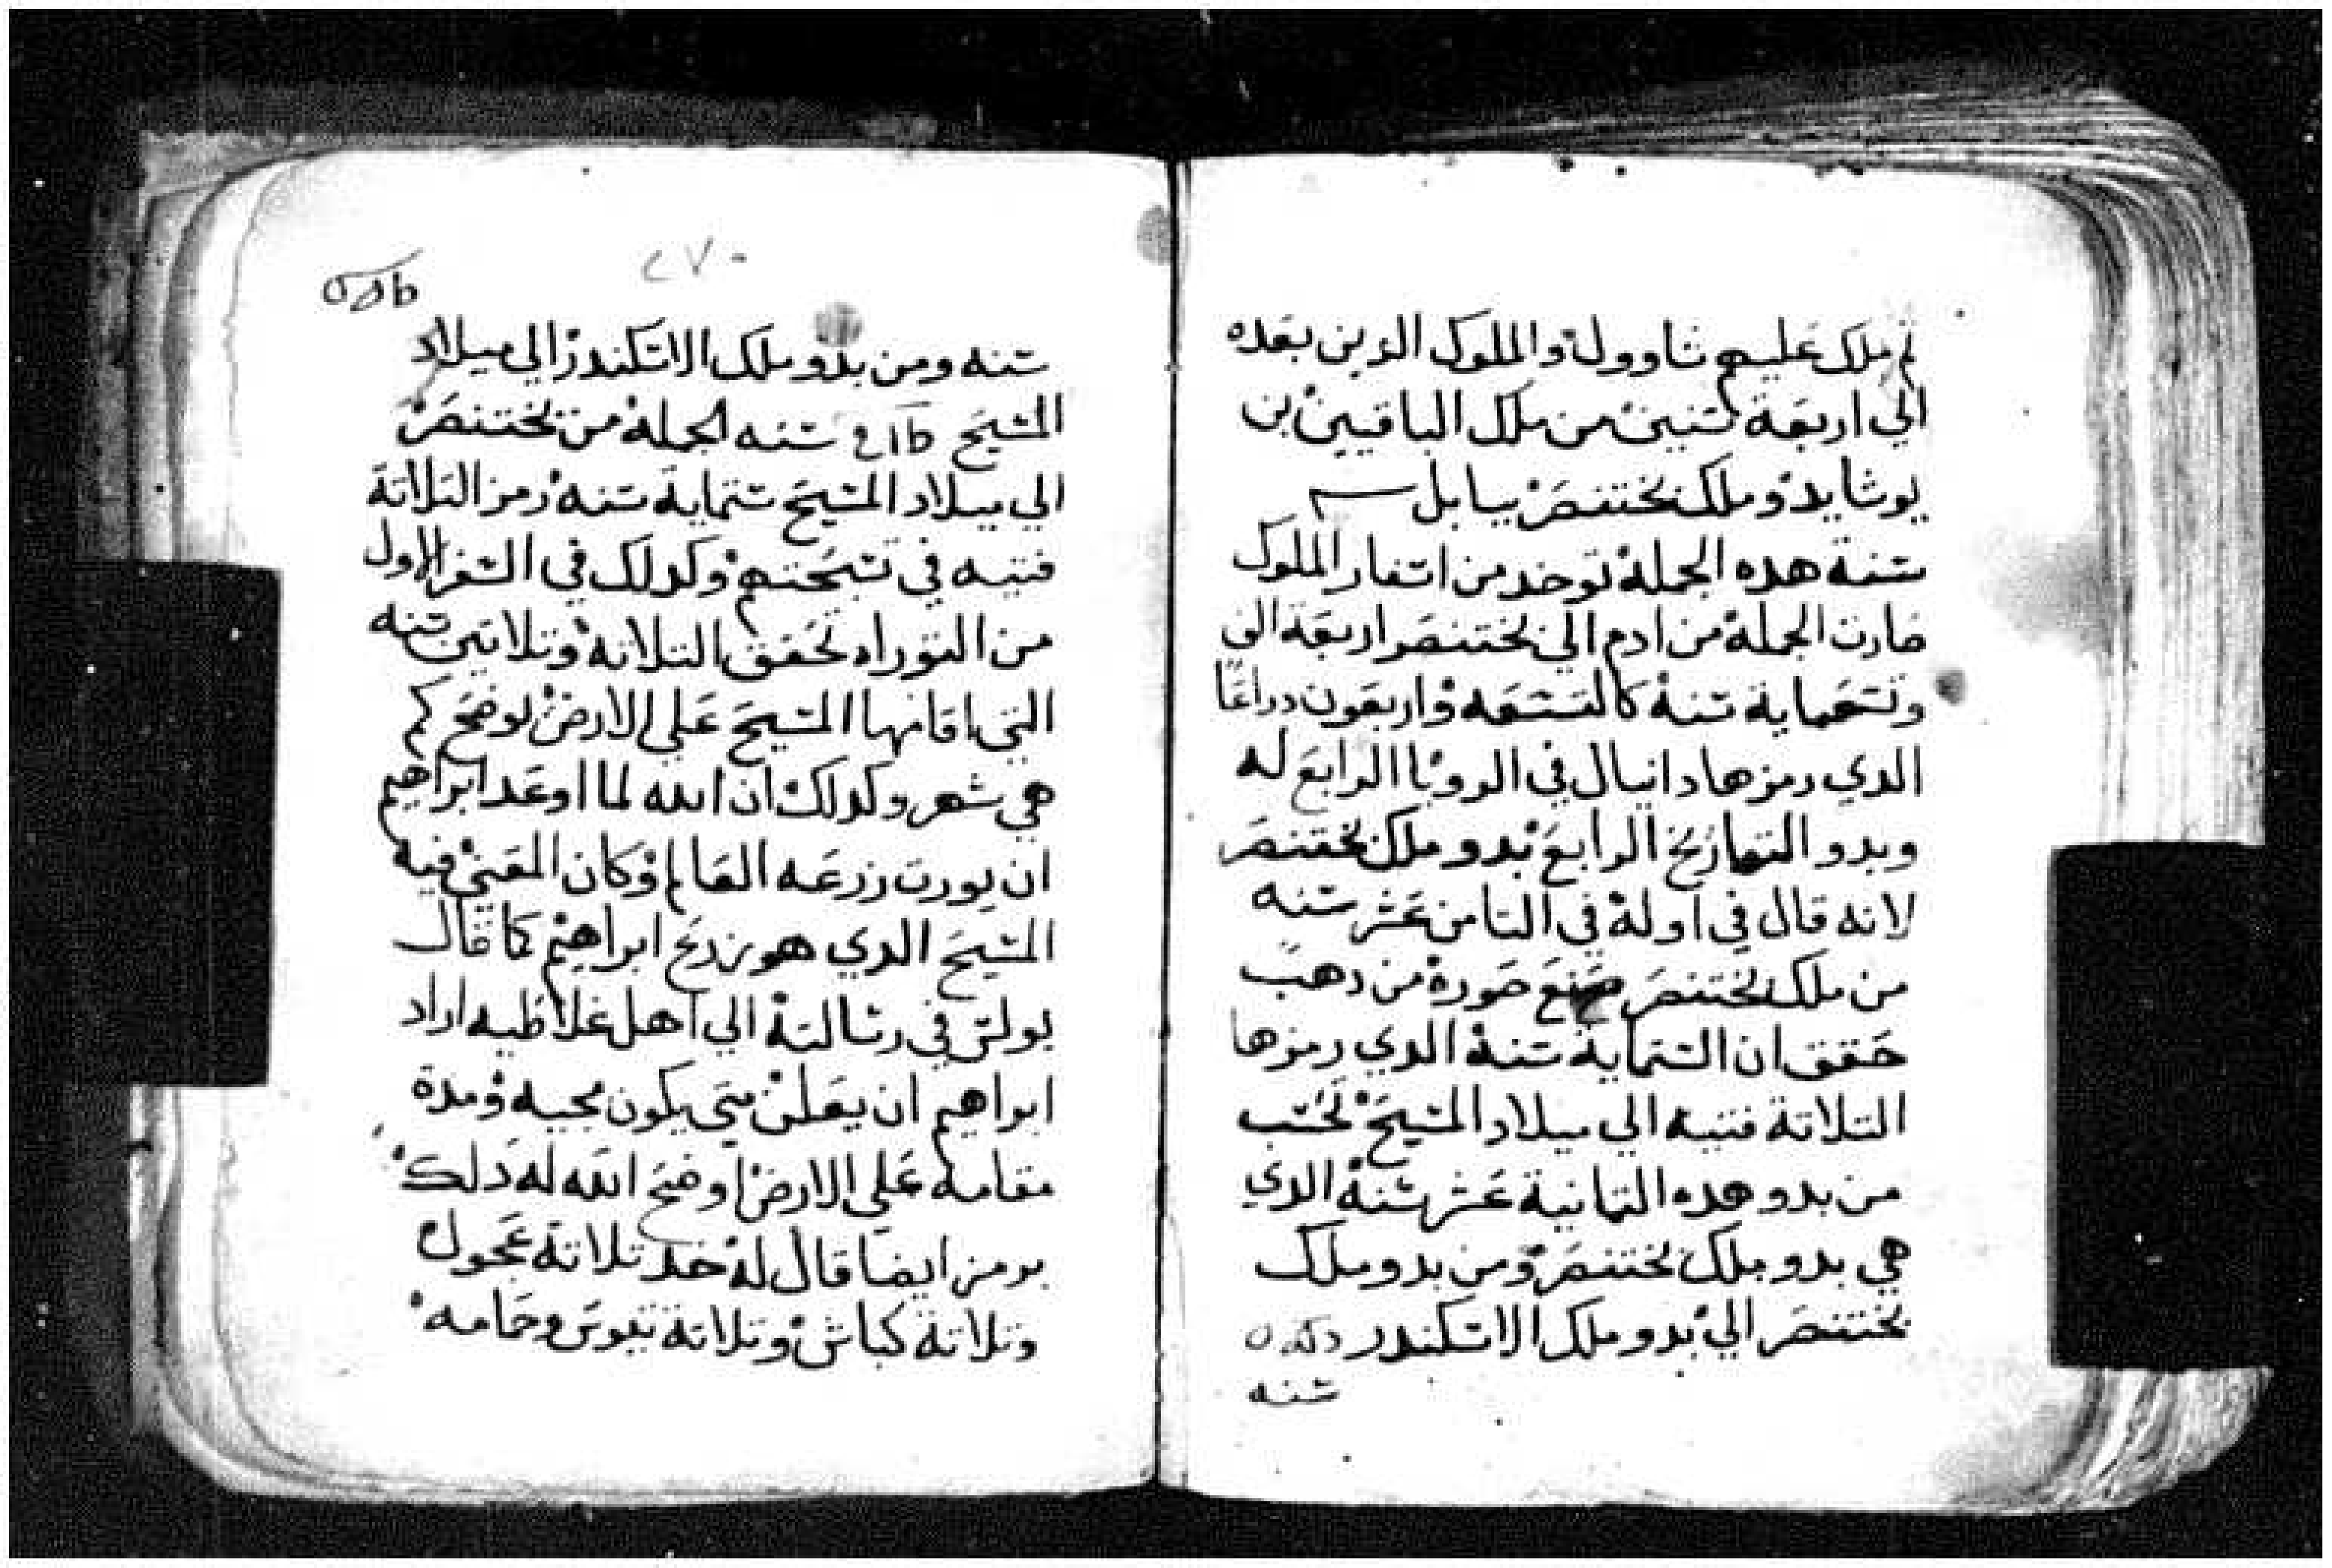 ثم ملك عليهم شاوول والملوك الذين بعده
الي اربعة سنين من ملك الياقيين بن
يوشا يدو ملك بختنصر ببابل
سنة هده الجملة توخد من اسفار الملوك
صارت الجملة من ادم الي بختنصر اربعة الف
وتسعماية سنة كالتسعه واربعون دراعًا
الدي رمزها دانيال في الرويا الرابع له
وبدو التواريخ الرابع بدو ملك بختنصر
لانه قال في اوله في التامن عشر سنه
من ملك بختنصر صنع صورة من دهب
حقق ان الستماية سنة الدي رمزها
التلاتة فتيه الي ميلاد المسيح تحسب
من بدو هده التمانية عشر سنة الدي
هي بدو ملك بختنصر ومن بدو ملك
بختنصر الي بدو ملك الاسكندر
سنه
٢٧٠
سنه ومن بدو ملك الاسكندر الي ميلاد
المسيح سنه الجملة من بختنصر
الي ميلاد المسيح ستماية سنة رمز التلاتة
فتيه في تسبحتهم وكدلك في السفر الاول
من التوراه تحقق التلاتة وتلاتين سنه
التي اقامها المسيح علي الارض لوضح كم
هي شهر وكدلك ان الله لما اوعد ابراهيم
ان يورت زرعه العالم وكان المعني فيه
المسيح الدي هو زرع ابراهيم كما قال
بولس في رسالته الي اهل غلاطيه اراد
ابراهيم ان يعلن متي يكون مجيه ومدة
مقامه علي الارض اوضح الله له دلك
برمز ايضا قال له خد تلاتة عجول
وتلاتة كباش وتلاتة تيوس وحمامه